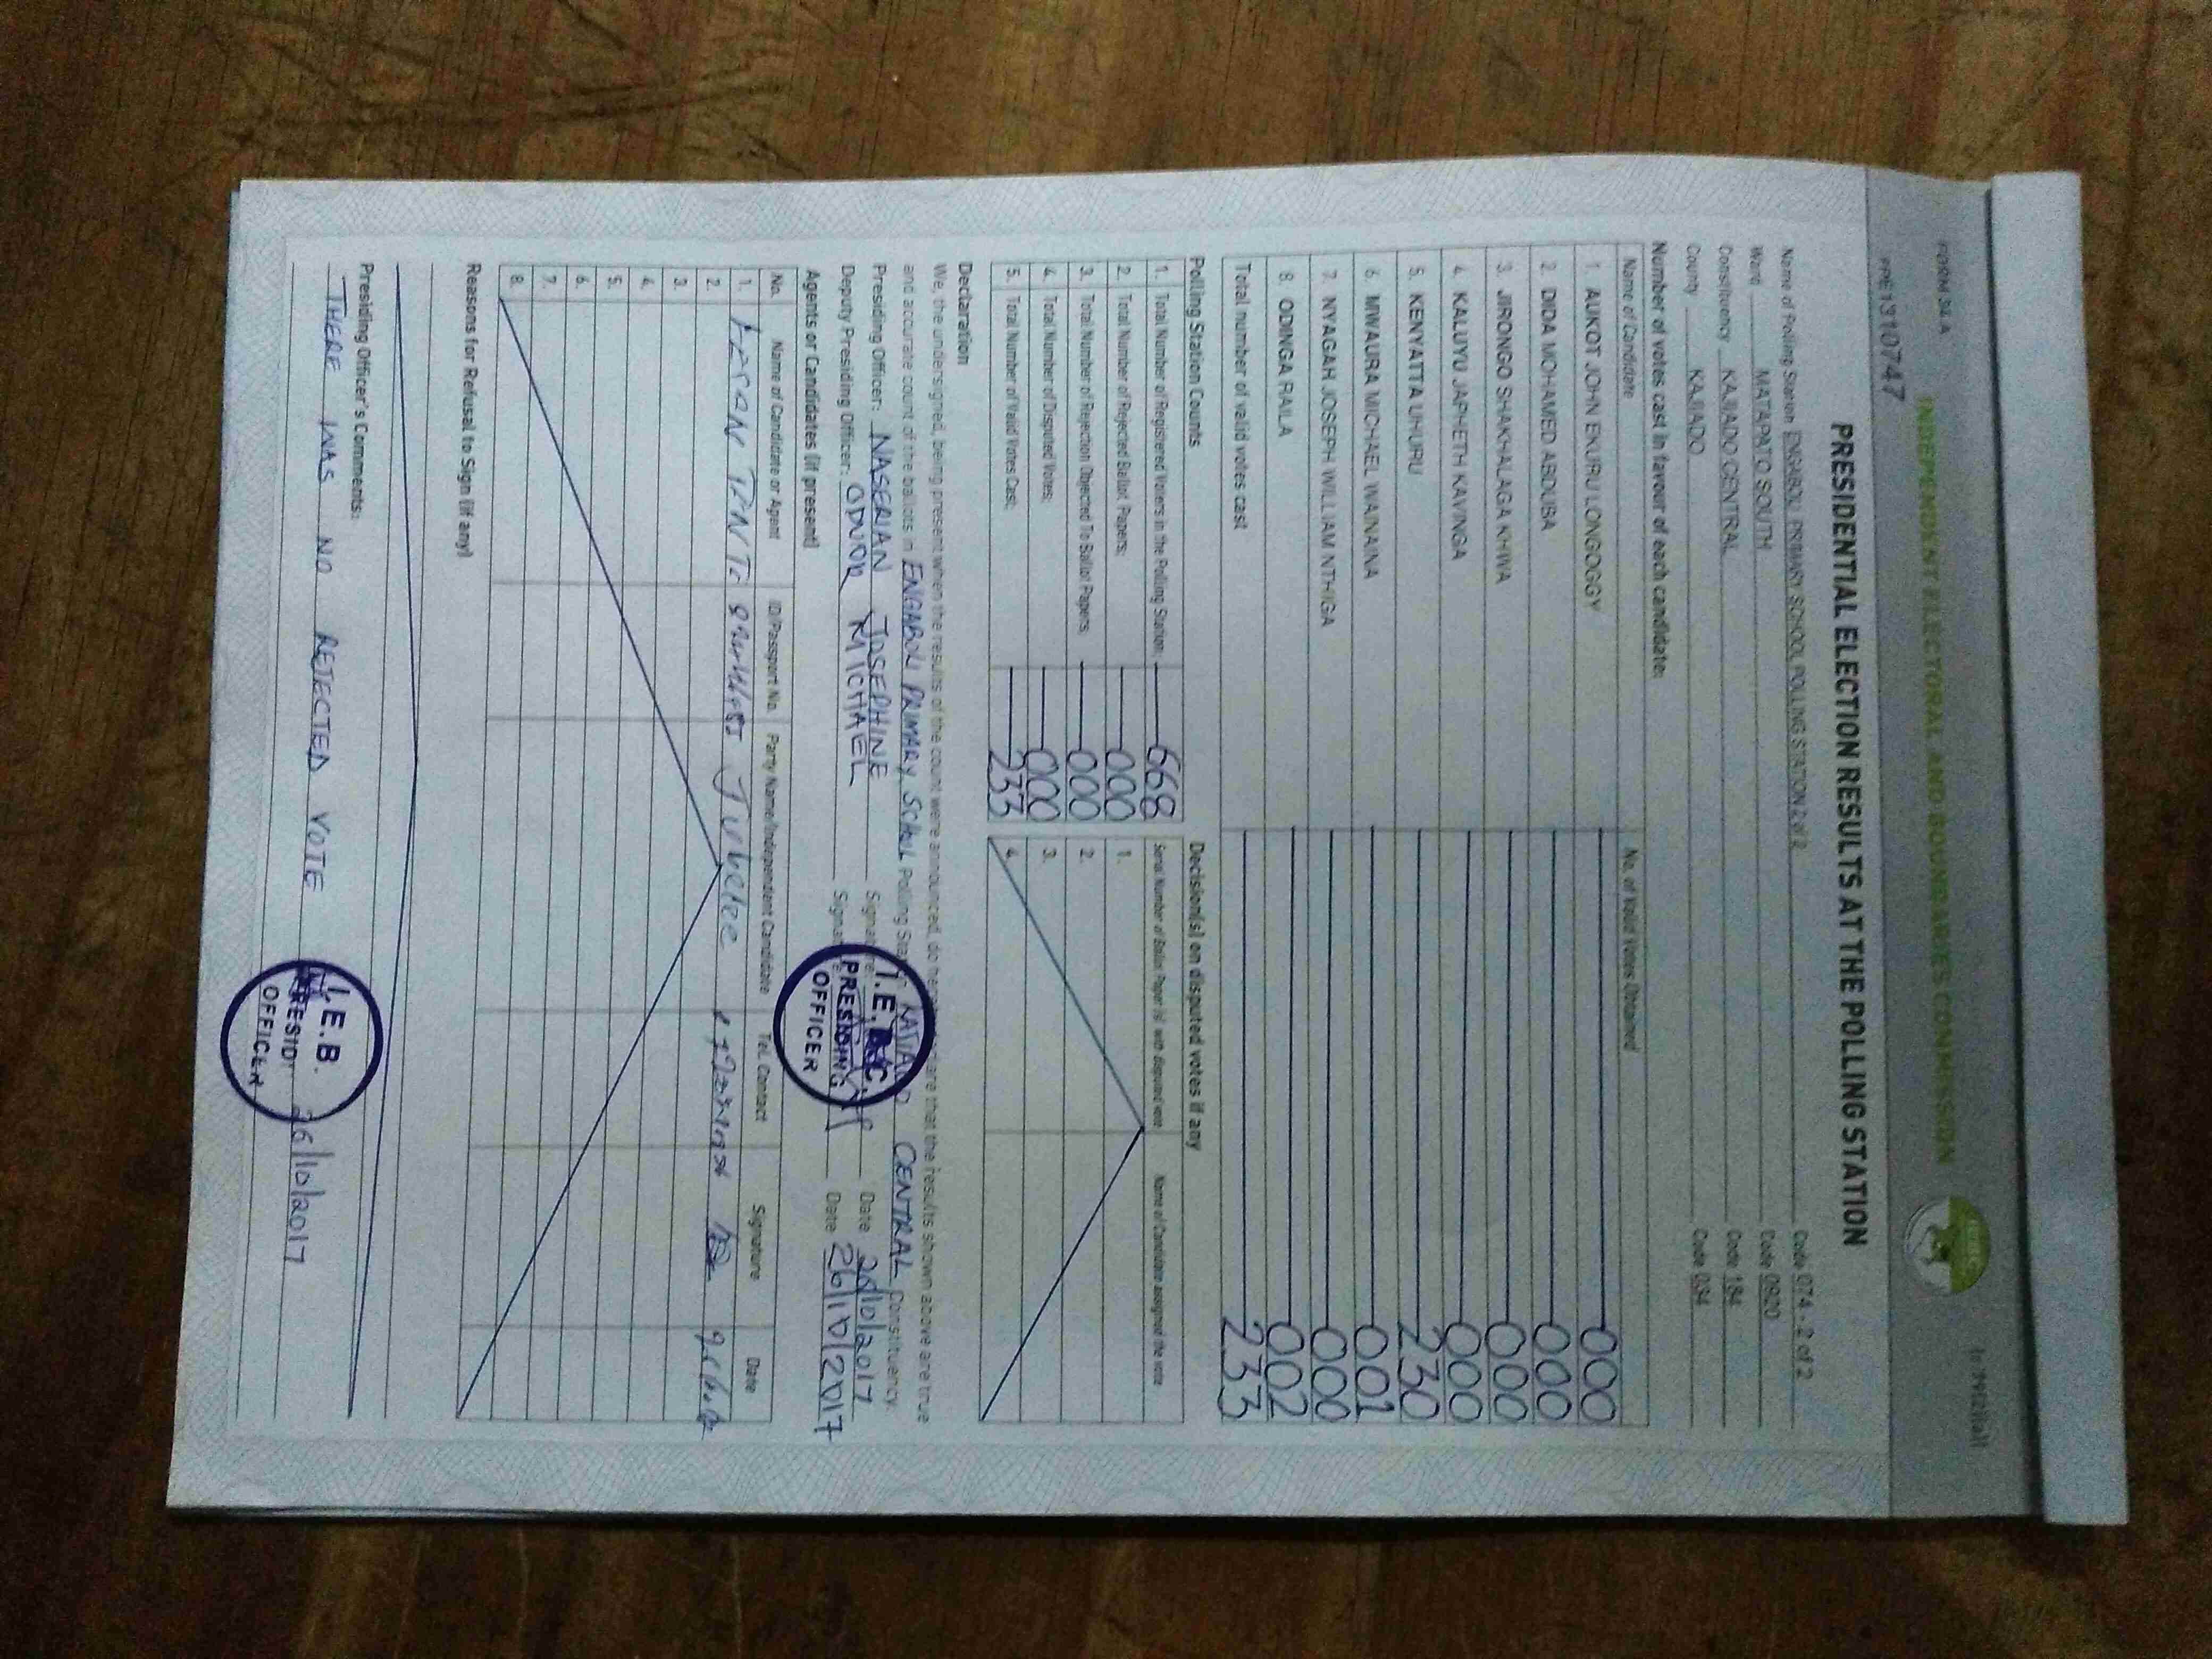 FORM 34 A
PPE1310747
INDEPENDENT ELECTORAL AND BOUNDARIES COMMISSION
PRESIDENTIAL ELECTION RESULTS AT THE POLLING STATION
Name of Polling Station ENGABOLI PRIMARY SCHOOL POLLING STATION 2 of 2 Code 074 - 2 of 2
Ward MATAPATO SOUTH Code 0920
Constituency KAJIADO CENTRAL Code 184
County KAJIADO Code 034
Number of votes cast in favour of each candidate:
Name of Candidate No. of Valid Votes Obtained
1. AUKOT JOHN EKURU LONGOGGY 000
2. DIDA MOHAMED ABDUBA 000
3. JIRONGO SHAKHALAGA KHWA 000
4. KALUYU JAPHETH KAVINGA 000
5. KENYATTA UHURU 230
6. MWAURA MICHAEL WAINAINA 001
7. NYAGAH JOSEPH WILLIAM NTHIGA 000
8. ODINGA RAILA 002
Total number of valid votes cast 233
Polling Station Counts
1. Total Number of Registered Voters in the Polling Station: 668
2. Total Number of Rejected Ballot Papers: 000
3. Total Number of Rejection Objected To Ballot Papers: 000
4. Total Number of Disputed Votes: 000
5. Total Number of Valid Votes Cast: 233
Decision(s) on disputed votes if any
Serial Number of Ballot Paper (s) with disputed vote Name of Candidate assigned the vote
1.
2.
3.
4.
Declaration
We, the undersigned, being present when the results of the count were announced, do hereby declare that the results shown above are true
and accurate count of the ballots in ENGABOLI PRIMARY SCHOOL Polling Station KAJIADO CENTRAL Constituency.
Presiding Officer: NASERIAN JOSEPHINE Signature: Date 26/10/2017
Deputy Presiding Officer: ODUOR MICHAEL Signature: Date 26/10/2017
I.E.B.C.
PRESIDING
OFFICER
Agents or Candidates (if present)
No. Name of Candidate or Agent ID/Passport No. Party Name/Independent Candidate Tel. Contact Signature Date
1. Jubelee
2.
3.
4.
5.
6.
7.
8.
Reasons for Refusal to Sign (if any)
Presiding Officer's Comments:
THERE WAS NO REJECTED VOTE
I.E.B.
OFFICER
26/10/2017